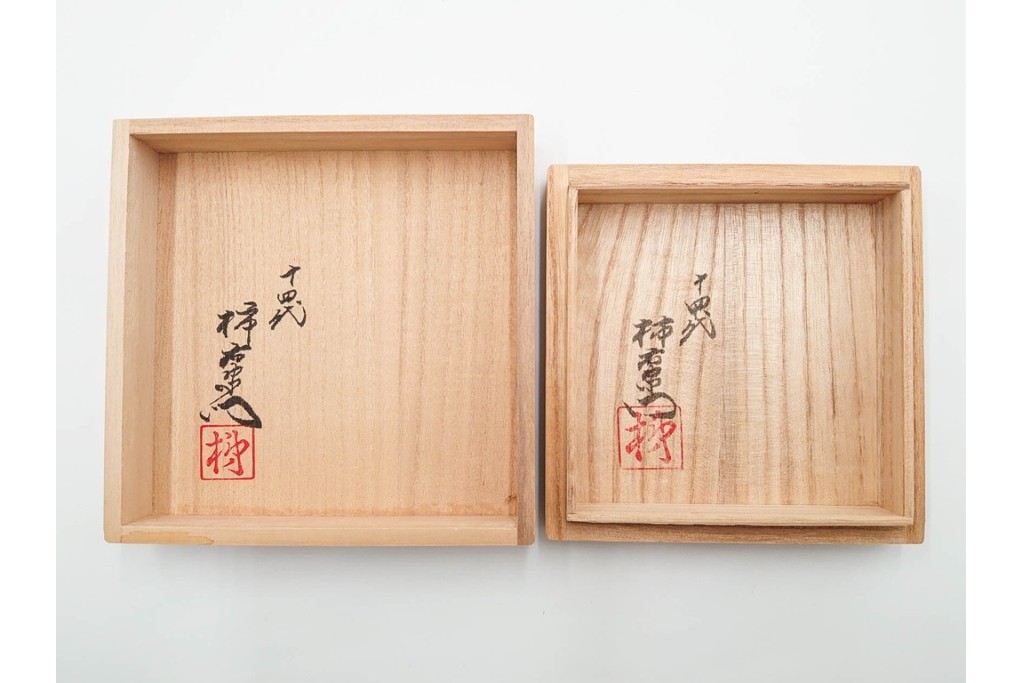 十四代
柿右衛門
柿
十四代
柿右衛門
柿